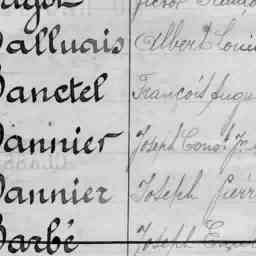 alluais Albert Loui
anctel François Augu
annier Joseph Const
annier Joseph Pierr
Barbé Joseph